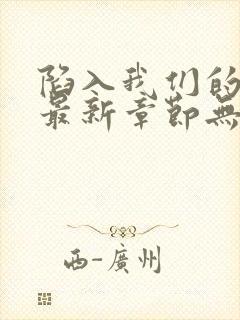 陷入我们的
最新章節無
西-廣州